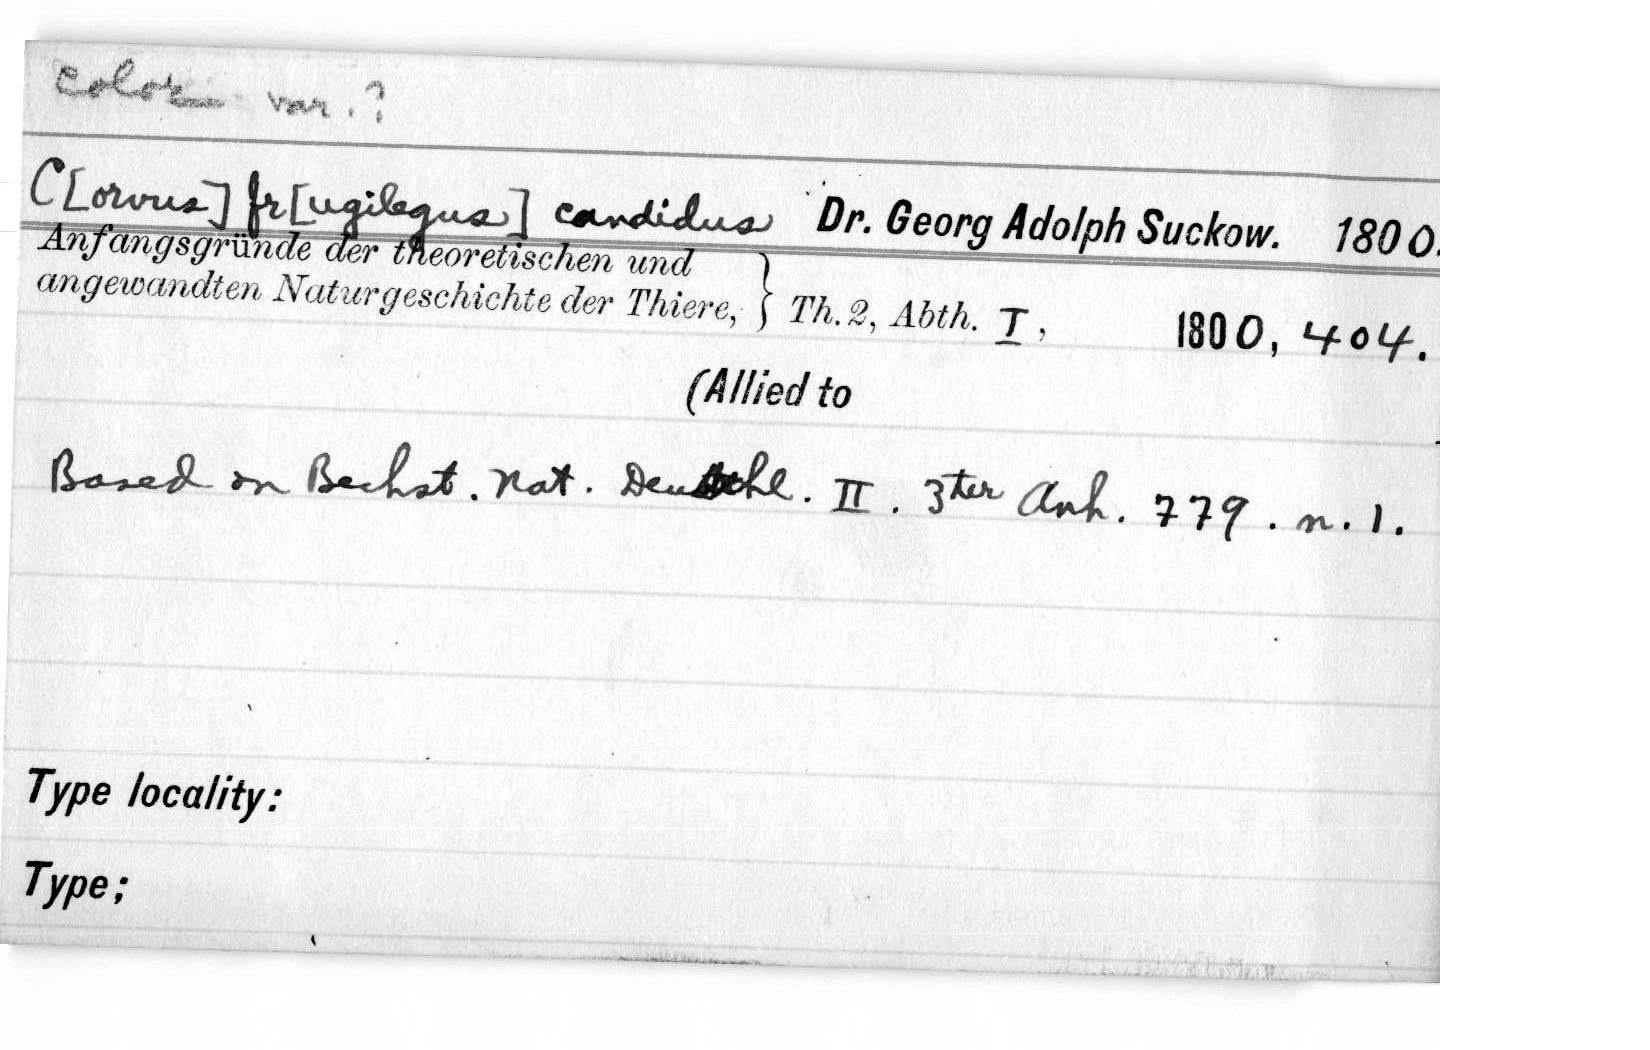 color var.?
C[orvus] fr[ugilegus] candidus Dr. Georg Adolph Suckow. 1800.
Anfangsgründe der theoretischen und
angewandten Naturgeschichte der Thiere, } Th. 2, Abth. I, 1800, 404.
(Allied to
Based on Bechst. Nat. Deutschl. II. 3ter Anh. 779. n. 1.
Type locality:
Type;